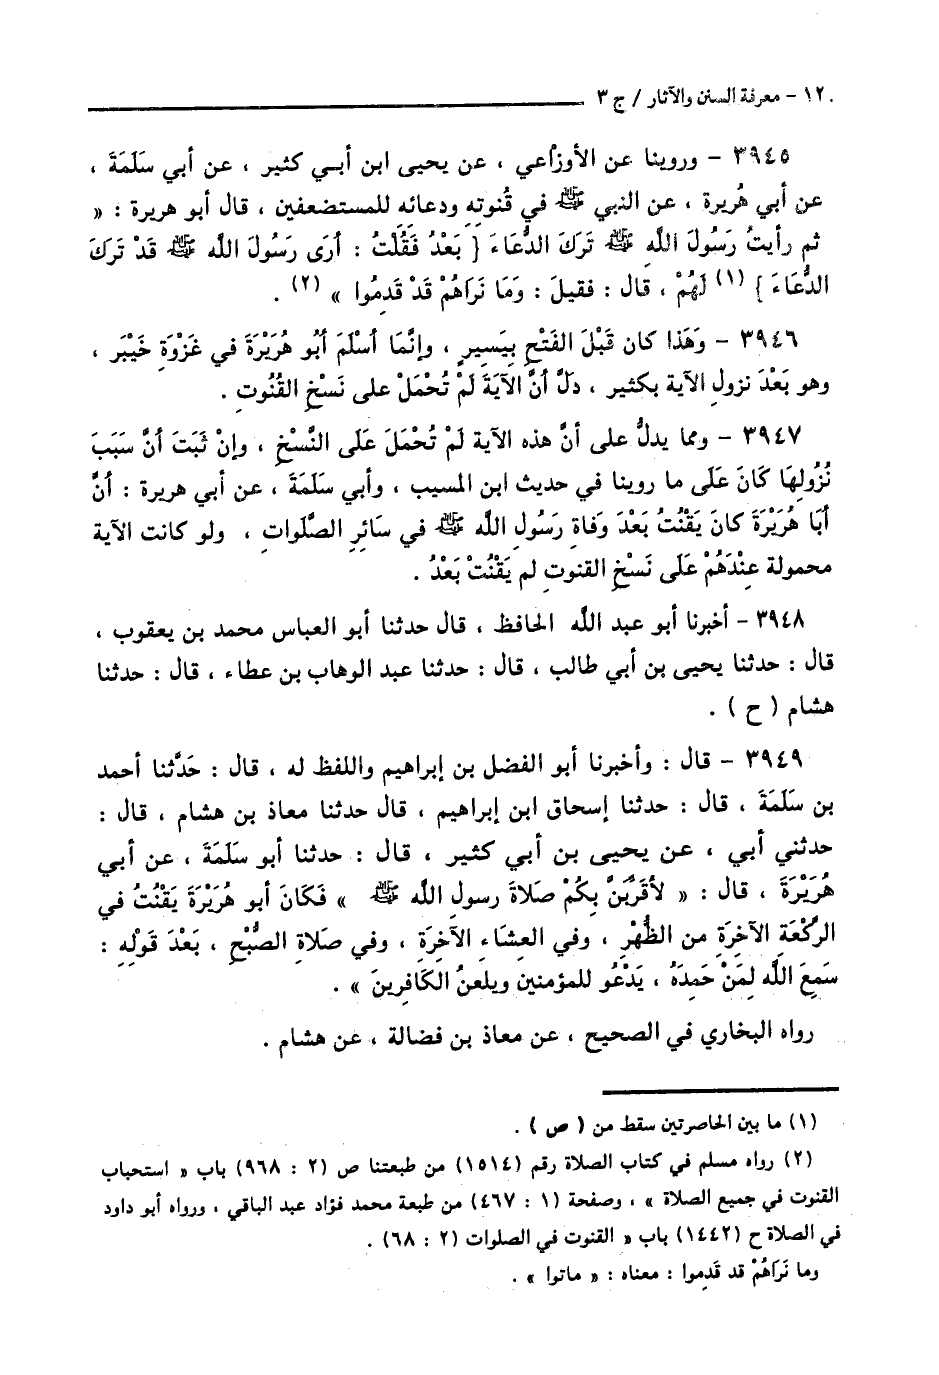 ١٢٠ - معرفة السنن والآثار / ج ٣
٣٩٤٥ - وروينا عن الأوزاعي ، عن يحيى ابن أبي كثير ، عن أبي سَلَمَةَ ،
عن أبي هُريرة ، عن النبي ﷺ في قُنوتِه ودعائه للمستضعفين ، قال أبو هريرة : «
ثم رأيتُ رَسُولَ اللَّه ﷺ تَرَكَ الدُّعَاءَ { بَعْدُ فَقُلْتُ : أرَى رَسُولَ الله ﷺ قَدْ تَرَكَ
الدُّعَاءَ } (١) لَهُمْ ، قال : فقيلَ : وَمَا نَرَاهُمْ قَدْ قَدِمُوا » (٢) .
٣٩٤٦ - وَهَذا كان قَبْلَ الفَتْحِ بِيَسيرٍ ، وإنَّمَا أسْلَمَ أبُو هُرَيْرَةَ في غَزْوَةِ خَيْبَر ،
وهو بَعْدَ نزولِ الآية بكثير ، دَلَّ أنَّ الآيَةَ لَمْ تُحْمَلْ على نَسْخِ القُنُوتِ .
٣٩٤٧ - ومما يدلُّ على أنَّ هذه الآية لَمْ تُحْمَلَ عَلَى النَّسْخِ ، وإنْ ثَبَتَ أنَّ سَبَبَ
نُزُولِهَا كَانَ عَلَى ما روينا في حديث ابن المسيب ، وأبي سَلَمَةَ ، عن أبي هريرة : أنَّ
أبَا هُرَيْرَةَ كانَ يَقْنُتُ بَعْدَ وَفاةِ رَسُولِ اللَّه ﷺ في سَائِرِ الصَّلَواتِ ، ولو كانت الآية
محمولة عِنْدَهُمْ عَلَى نَسْخِ القنوتِ لم يَقْنُتْ بَعْدُ .
٣٩٤٨ - أخبرنا أبو عبد اللَّه الحافظ ، قال حدثنا أبو العباس محمد بن يعقوب ،
قال : حدثنا يحيى بن أبي طالب ، قال : حدثنا عبد الوهاب بن عطاء ، قال : حدثنا
هشام ( ح ) .
٣٩٤٩ - قال : وأخبرنا أبو الفضل بن إبراهيم واللفظ له ، قال : حَدَّثنا أحمد
بن سَلَمَةَ ، قال : حدثنا إسحاق ابن إبراهيم ، قال حدثنا معاذ بن هشام ، قال :
حدثني أبي ، عن يحيى بن أبي كثير ، قال : حدثنا أبو سَلَمَةَ ، عن أبي
هُرَيْرَةَ ، قال : « لأقَرِّبَنَّ بِكُمْ صَلاةَ رسولِ الله ﷺ » فَكَانَ أبو هُرَيْرَةَ يَقْنُتُ في
الركْعَةِ الآخِرَةِ من الظُّهْرِ ، وفي العِشَاءِ الآخِرَةِ ، وفي صَلاةِ الصُّبْحِ ، بَعْدَ قَوْلِهِ :
سَمِعَ اللَّه لِمَنْ حَمِدَهُ ، يَدْعُو للمؤمنين ويلعنُ الكَافِرِينَ » .
رواه البخاري في الصحيح ، عن معاذ بن فضالة ، عن هشام .
(١) ما بين الحاصرتين سقط من ( ص ) .
(٢) رواه مسلم في كتاب الصلاة رقم (١٥١٤) من طبعتنا ص (٢ : ٩٦٨) باب « استحباب
القنوت في جميع الصلاة » ، وصفحة (١ : ٤٦٧) من طبعة محمد فؤاد عبد الباقي ، ورواه أبو داود
في الصلاة ح (١٤٤٢) باب « القنوت في الصلوات (٢ : ٦٨) .
وما نَرَاهُمْ قد قَدِموا : معناه : « ماتوا » .